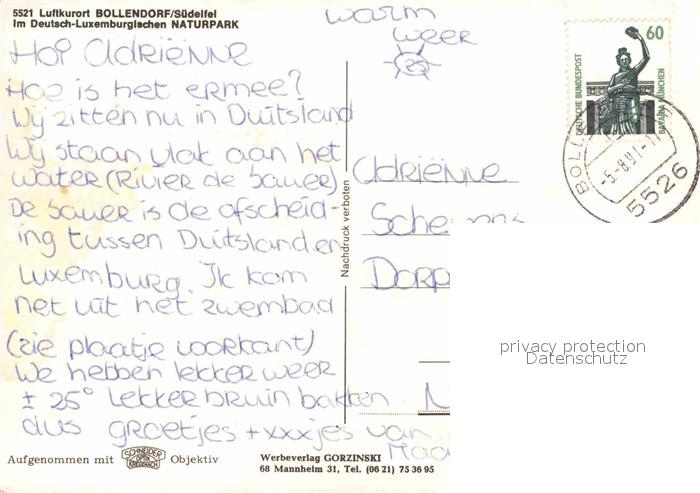 5521 Luftkurort BOLLENDORF/Südeifel
Im Deutsch-Luxemburgischen NATURPARK
warm
weer
25
Hoi Adriënne
Hoe is het ermee?
Wij zitten nu in Duitsland
Wij staan vlak aan het
water (Rivier de Sauer)
De Sauer is de afscheid-
ing tussen Duitsland en
Luxemburg. Ik kom
net uit het zwembad
(zie plaatje voorkant)
We hebben lekker weer
± 25° Lekker bruin bakken
dus groetjes + xxxjes van
Adriënne
Dorp
Nachdruck verboten
60
DEUTSCHE BUNDESPOST
BAVARIA MÜNCHEN
BOLL
-5.-8.91-1
5526
privacy protection
Datenschutz
Aufgenommen mit SCHNEIDER OPTIK KREUZNACH Objektiv
Werbeverlag GORZINSKI
68 Mannheim 31, Tel. (06 21) 75 36 95